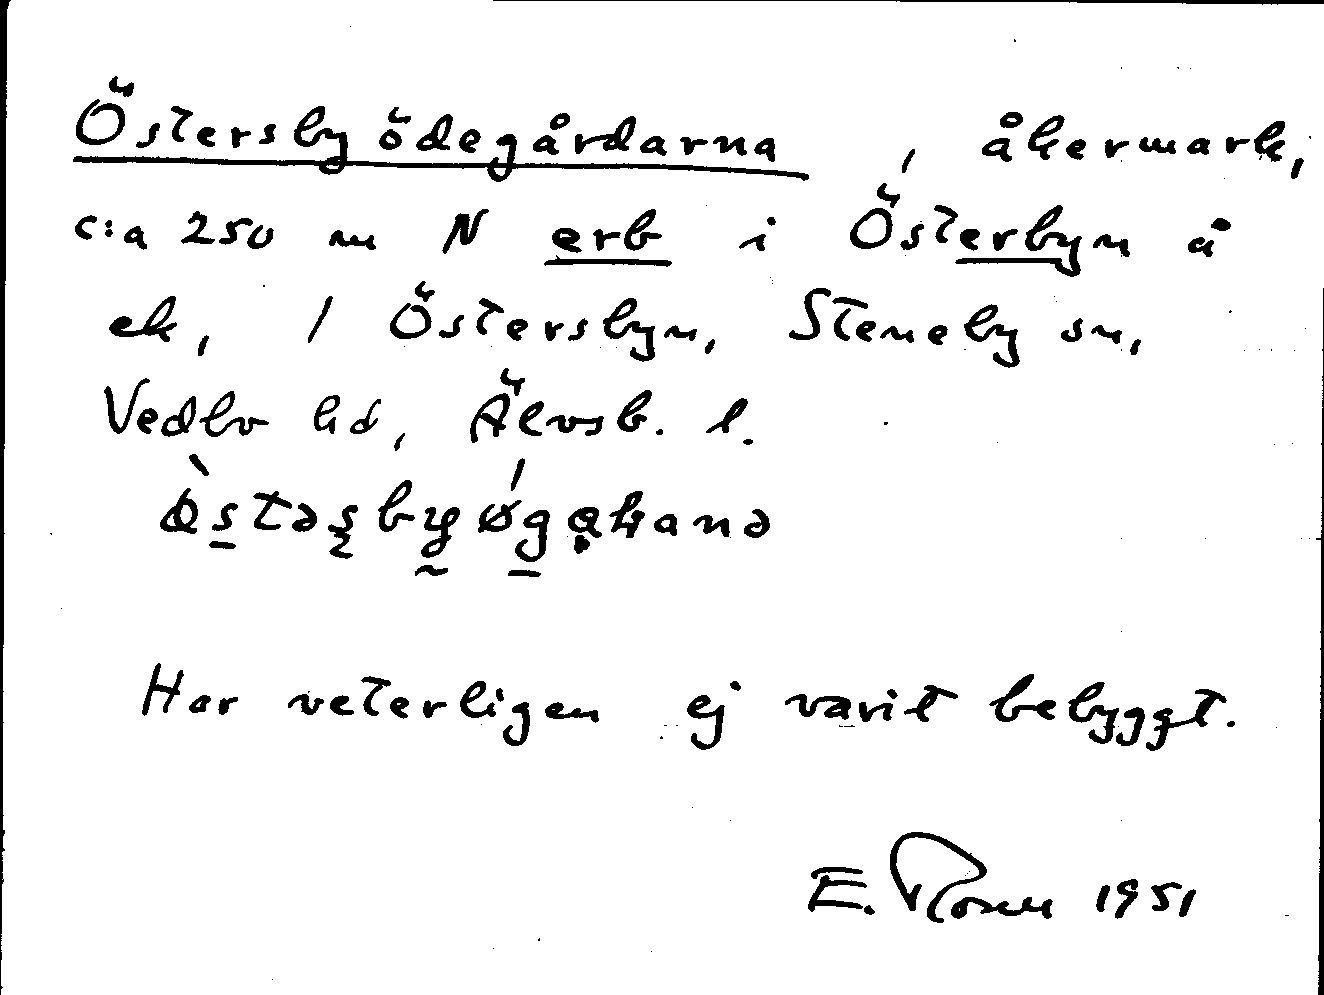 Östersby ödegårdarna, åkermark,
c:a 250 m N erb i Österbyn å
ek, 1 Östersbyn, Steneby sn,
Vedbo hd, Älvsb. l.
Har veterligen ej varit bebyggt.
E. Rosen 1951